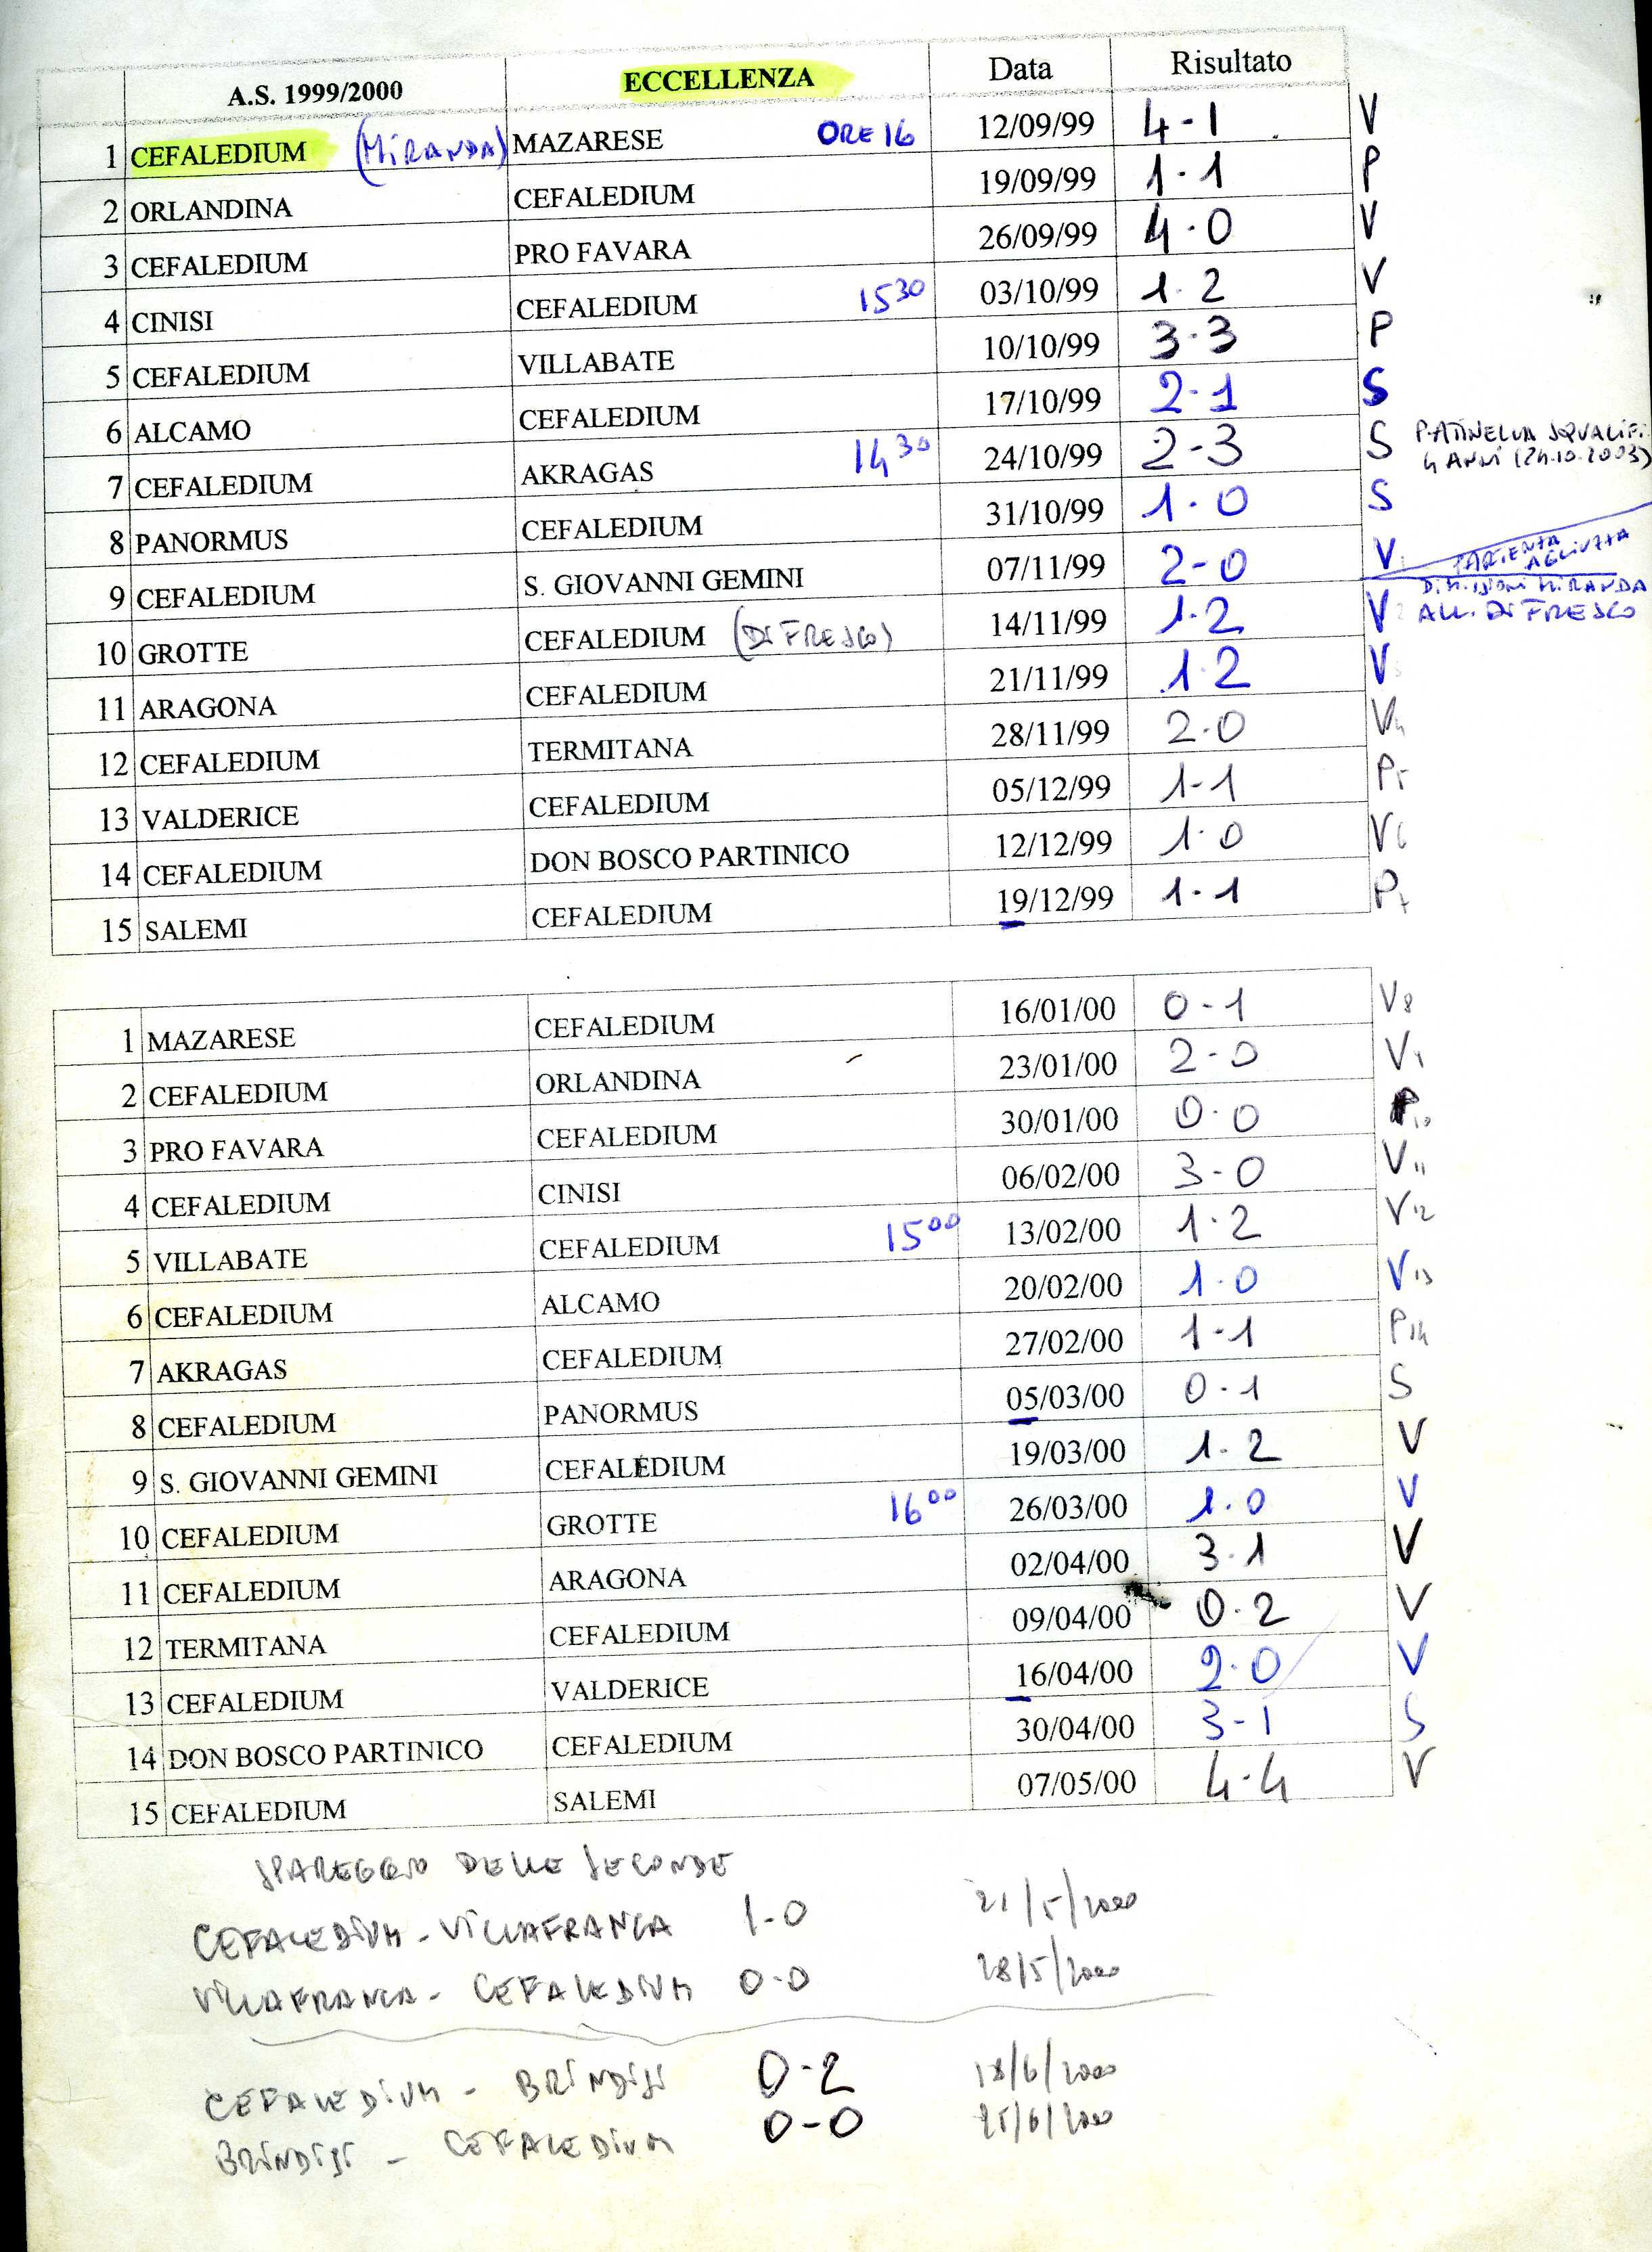 A.S. 1999/2000 ECCELLENZA Data Risultato
1 CEFALEDIUM (MIRANDA) MAZARESE ORE 16 12/09/99 4-1 V
2 ORLANDINA CEFALEDIUM 19/09/99 1-1 P
3 CEFALEDIUM PRO FAVARA 26/09/99 4-0 V
4 CINISI CEFALEDIUM 15 30 03/10/99 1-2 V
5 CEFALEDIUM VILLABATE 10/10/99 3-3 P
6 ALCAMO CEFALEDIUM 17/10/99 2-1 S
7 CEFALEDIUM AKRAGAS 14 30 24/10/99 2-3 S PATINELLA SQUALIFI.
4 ANNI (24.10.2003)
8 PANORMUS CEFALEDIUM 31/10/99 1-0 S
9 CEFALEDIUM S. GIOVANNI GEMINI 07/11/99 2-0 V1 PARTENZA AGLIUZZA
DIMISSIONI MIRANDA
10 GROTTE CEFALEDIUM (DI FRESCO) 14/11/99 1-2 V2 ALL. DI FRESCO
11 ARAGONA CEFALEDIUM 21/11/99 1-2 V3
12 CEFALEDIUM TERMITANA 28/11/99 2-0 V4
13 VALDERICE CEFALEDIUM 05/12/99 1-1 P5
14 CEFALEDIUM DON BOSCO PARTINICO 12/12/99 1-0 V6
15 SALEMI CEFALEDIUM 19/12/99 1-1 P7
1 MAZARESE CEFALEDIUM 16/01/00 0-1 V8
2 CEFALEDIUM ORLANDINA 23/01/00 2-0 V9
3 PRO FAVARA CEFALEDIUM 30/01/00 0-0 P10
4 CEFALEDIUM CINISI 06/02/00 3-0 V11
5 VILLABATE CEFALEDIUM 15 00 13/02/00 1-2 V12
6 CEFALEDIUM ALCAMO 20/02/00 1-0 V13
7 AKRAGAS CEFALEDIUM 27/02/00 1-1 P14
8 CEFALEDIUM PANORMUS 05/03/00 0-1 S
9 S. GIOVANNI GEMINI CEFALEDIUM 19/03/00 1-2 V
10 CEFALEDIUM GROTTE 16 00 26/03/00 1-0 V
11 CEFALEDIUM ARAGONA 02/04/00 3-1 V
12 TERMITANA CEFALEDIUM 09/04/00 0-2 V
13 CEFALEDIUM VALDERICE 16/04/00 2-0 V
14 DON BOSCO PARTINICO CEFALEDIUM 30/04/00 3-1 S
15 CEFALEDIUM SALEMI 07/05/00 4-4 V
SPAREGGIO DELLE SECONDE
CEFALEDIUM - VILLAFRANCA 1-0 21/5/2000
VILLAFRANCA - CEFALEDIUM 0-0 28/5/2000
CEFALEDIUM - BRINDISI 0-2 18/6/2000
BRINDISI - CEFALEDIUM 0-0 25/6/2000